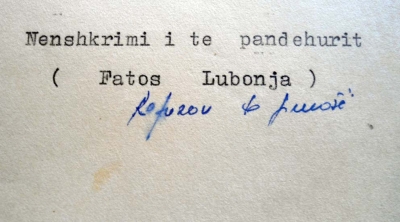 Nenshkrimi i te pandehurit
( Fatos Lubonja )
Refuzou të firmosë